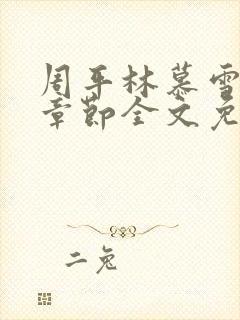 周平林慕雪
章节全文免
二兔